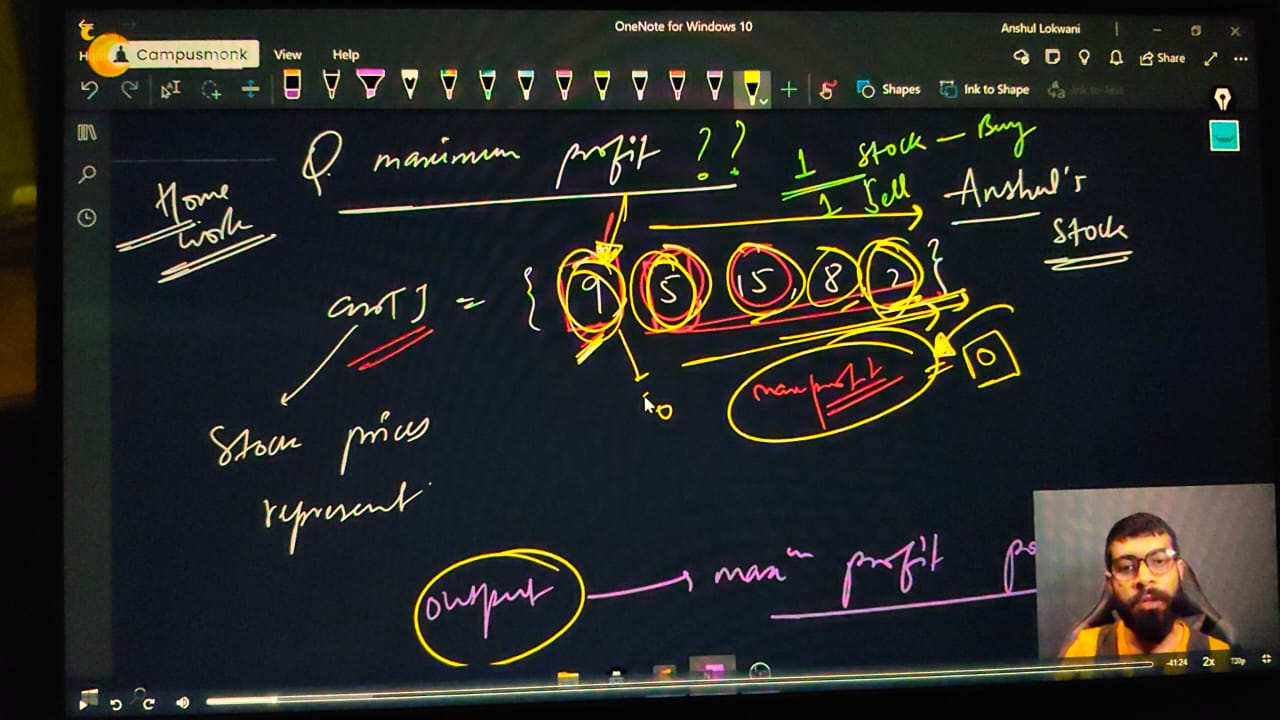 OneNote for Windows 10
Anshul Lokwani
Campusmonk
View
Help
Share
Shapes
Ink to Shape
Ink to Text
Q. maximum profit ??
1 stock - Buy
1 Sell
Anshul's
Stock
Home
work
arr[] = { 9 5 15, 8, 2 }
0
maxprofit = 0
Stock prices
represent
output → maxm profit
-41:24
2x
720p